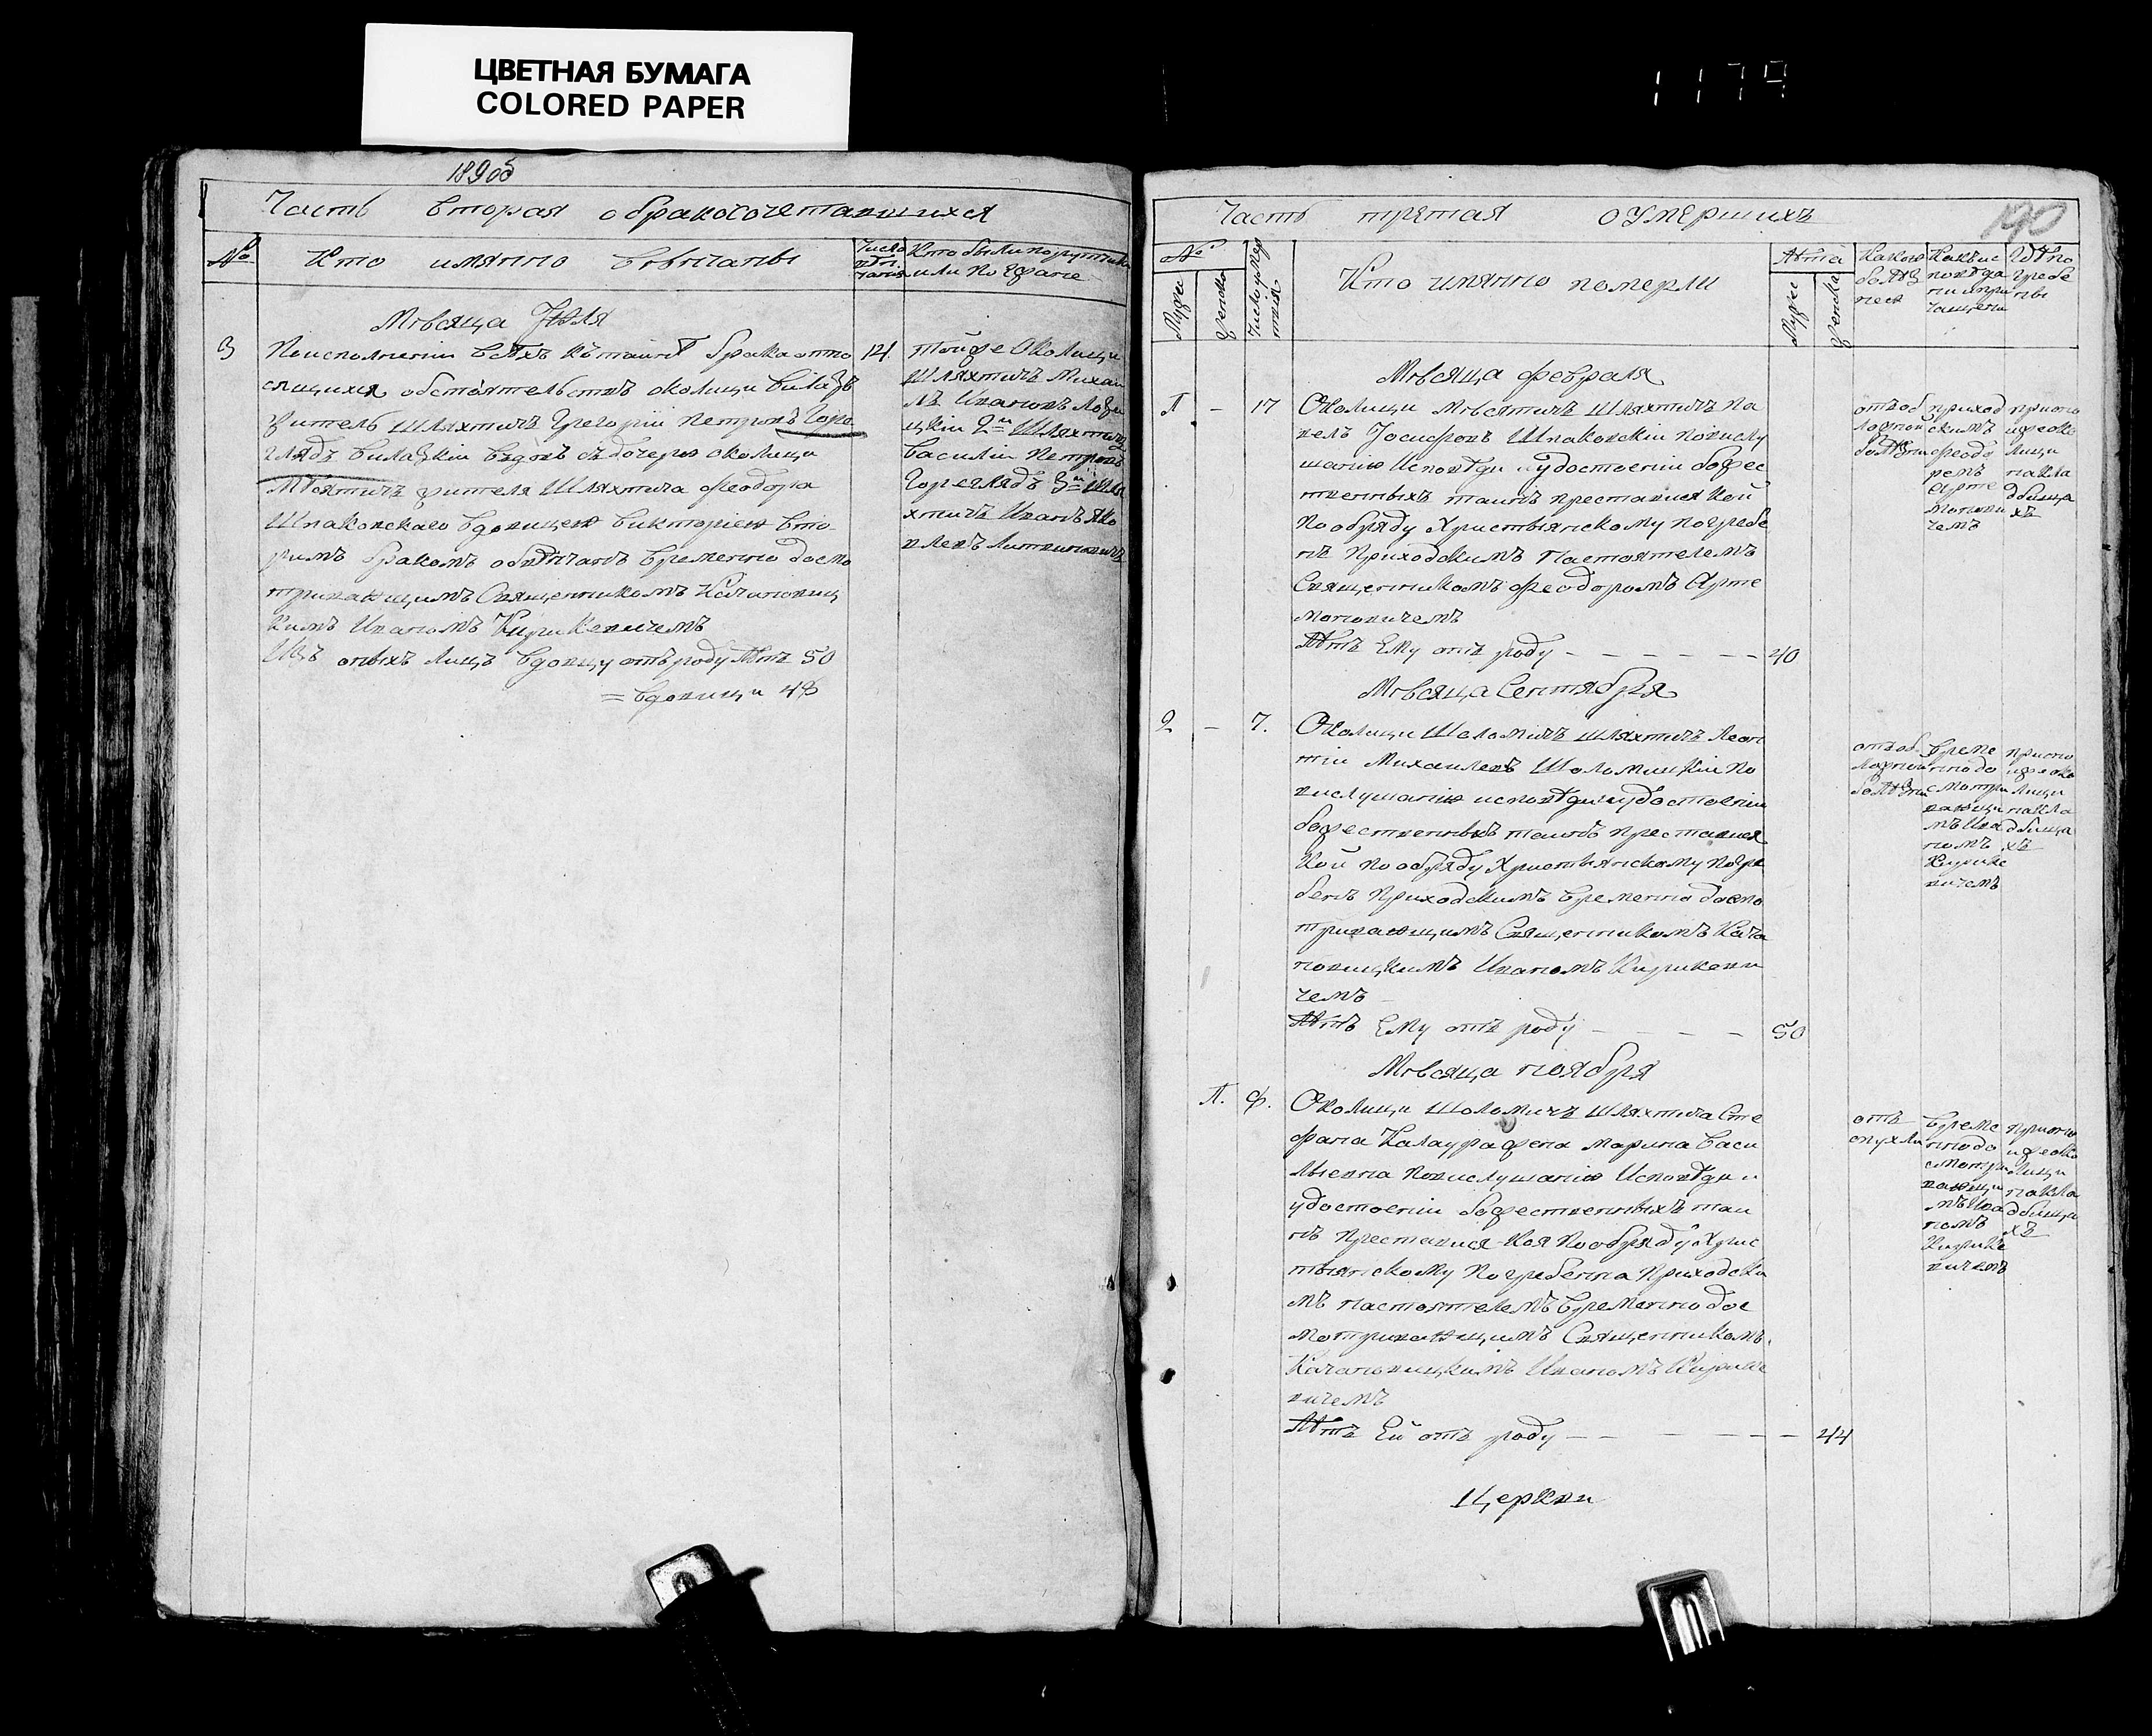 ЦВЕТНАЯ БУМАГА
COLORED PAPER
1179
189об
Часть вторая о бракосочетавшихся
№ Кто имянно ввѣнчаны
Кто были поручники
или поезжане
Мѣсяца Июля
3 По исполнении всѣхъ къ тайнѣ брака отно
14
сящихся обстоятельствъ околицы Вилазъ
житель шляхтичъ Григорій Петровъ Горо
глядъ Вилазкій вдовъ съ дочерю околицы
Мѣсятичъ жителя шляхтича Феодора
Шпаковскаго вдовицею Викторіею вто
рымъ бракомъ обвѣнчанъ временно досмо
тривающимъ Священникомъ Качановиц
кимъ Иваномъ Кирикевичемъ
Изъ оныхъ лицъ вдовцу отъ роду лѣтъ 50
= вдовици 48
тойже околицы
шляхтичъ Михаи
лъ Ивановъ
2й шляхтичъ
Василій Петровъ
Гореглядъ 3й шля
хтичъ Иванъ Яко
влевъ Литвиновичъ
Часть третая о умершихъ
190
№
Мужес
Женска
Число умер
твія
Кто имянно померли
Лѣта
Мужес
Женска
Какою
болѣз
нею
Кѣмъ ис
повѣда
ни и при
чащены
Гдѣ по
гребе
ны
Мѣсяца Февраля
1 – 17 Околицы Мѣсятичъ шляхтичъ Па
велъ Іосифовъ Шпаковскій по вислу
шанію исповѣди и удостоеніи божес
твенныхъ таинъ преставися кой
по обряду християнскому погребе
нъ приходскимъ настоятелемъ
Священникомъ Феодоромъ Арте
моновичемъ
Лѣтъ ему отъ роду – – – – – – 40
отъ об
ложной
болѣзни
приход
скимъ
Феодо
ромъ
Арте
монови
чемъ
при оно
й же око
лици
на кла
дбища
хъ
Мѣсяца Сентября
2 – 7. Околицы Шоломичъ шляхтичъ Леон
тій Михаилевъ Шоломицкій по
вислушанію исповѣди и удостоеніи
божественныхъ таинъ преставися
кой по обряду християнскому погре
бенъ приходскимъ временно досмо
тривающимъ Священникомъ Кача
новицкимъ Иваномъ Кирикеви
чемъ
Лѣтъ ему отъ роду – – – – 50
отъ об
ложной
болѣзни
време
нно до
смотри
вающи
мъ Ива
номъ
Кирике
вичемъ
при оно
й же око
лици
на кла
дбища
хъ
Мѣсяца ноября
1. Ф. Околицы Шоломичъ шляхтича Сте
фана Калаура жена Марина Васи
лыевна по вислушанію исповѣди и
удостоеніи божественныхъ таи
нъ преставися коя по обряду хрис
тыянскому погребенна приходски
мъ настоятелемъ временно дос
мотривающимъ Священникомъ
Качановицкимъ Иваномъ Кирике
вичемъ
Лѣтъ ей отъ роду – – – – – – 44
отъ
опухли
време
нно до
смотри
вающи
мъ Ива
номъ
Кирике
вичемъ
при оно
й же око
лици
на кла
дбища
хъ
Церкви